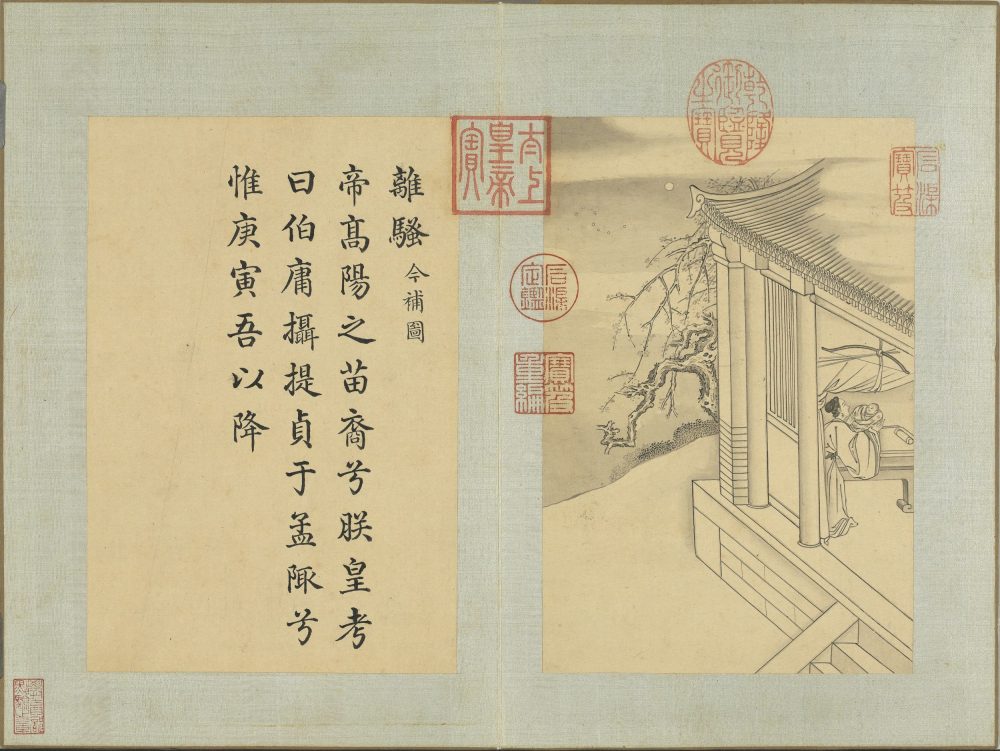 離騷 今補圖
帝高陽之苗裔兮朕皇考
曰伯庸攝提貞于孟陬兮
惟庚寅吾以降
太上皇帝之寶
乾隆御覽之寶
石渠寶笈
石渠定鑑
寶笈重編